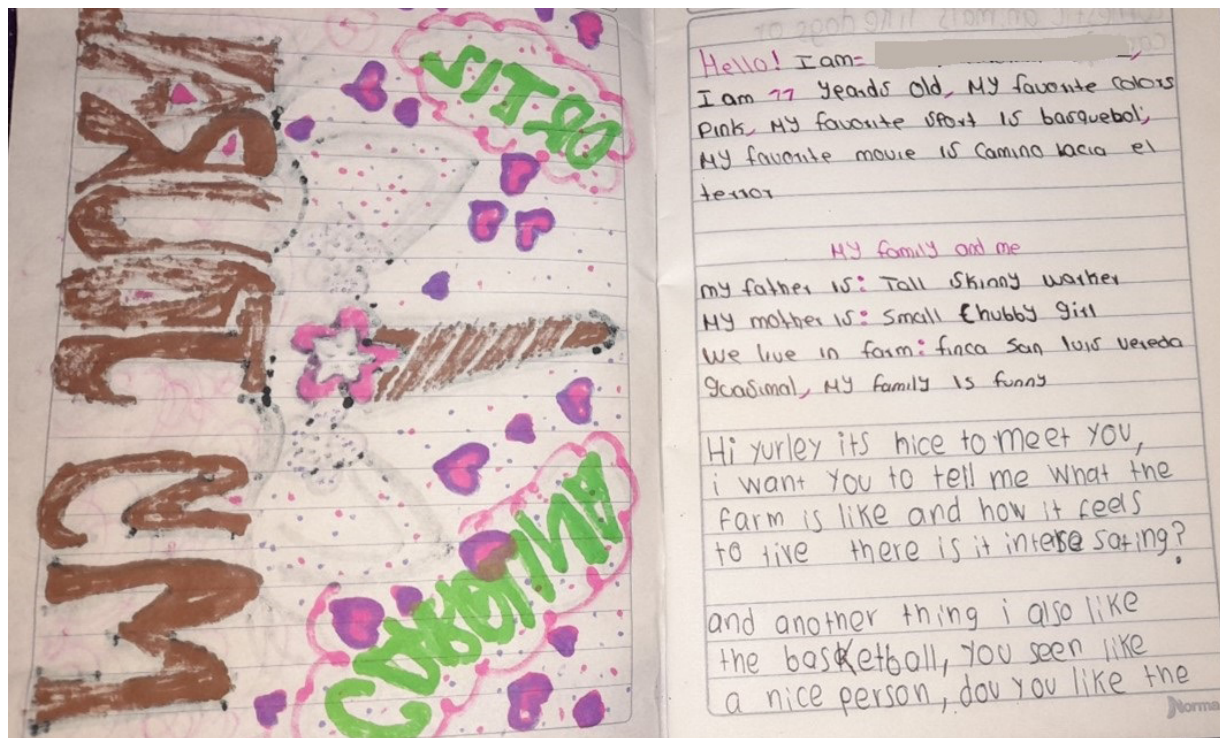 CAROLINA
Hello! I am=
I am 11 yeards old, My favorite colors
pink, My favorite sport is basquebol,
My favorite movie is Camino lacia el
terror
My family and me
my father is: Tall skinny worker
My mother is: small Chubby girl
We live in farm: finca San luis vereda
My family is funny
Hi yurley its nice to meet you,
i want you to tell me what the
farm is like and how it feels
to live there is it interesating?
and another thing i also like
the basketball, you seen like
a nice person, dou you like the
Norma